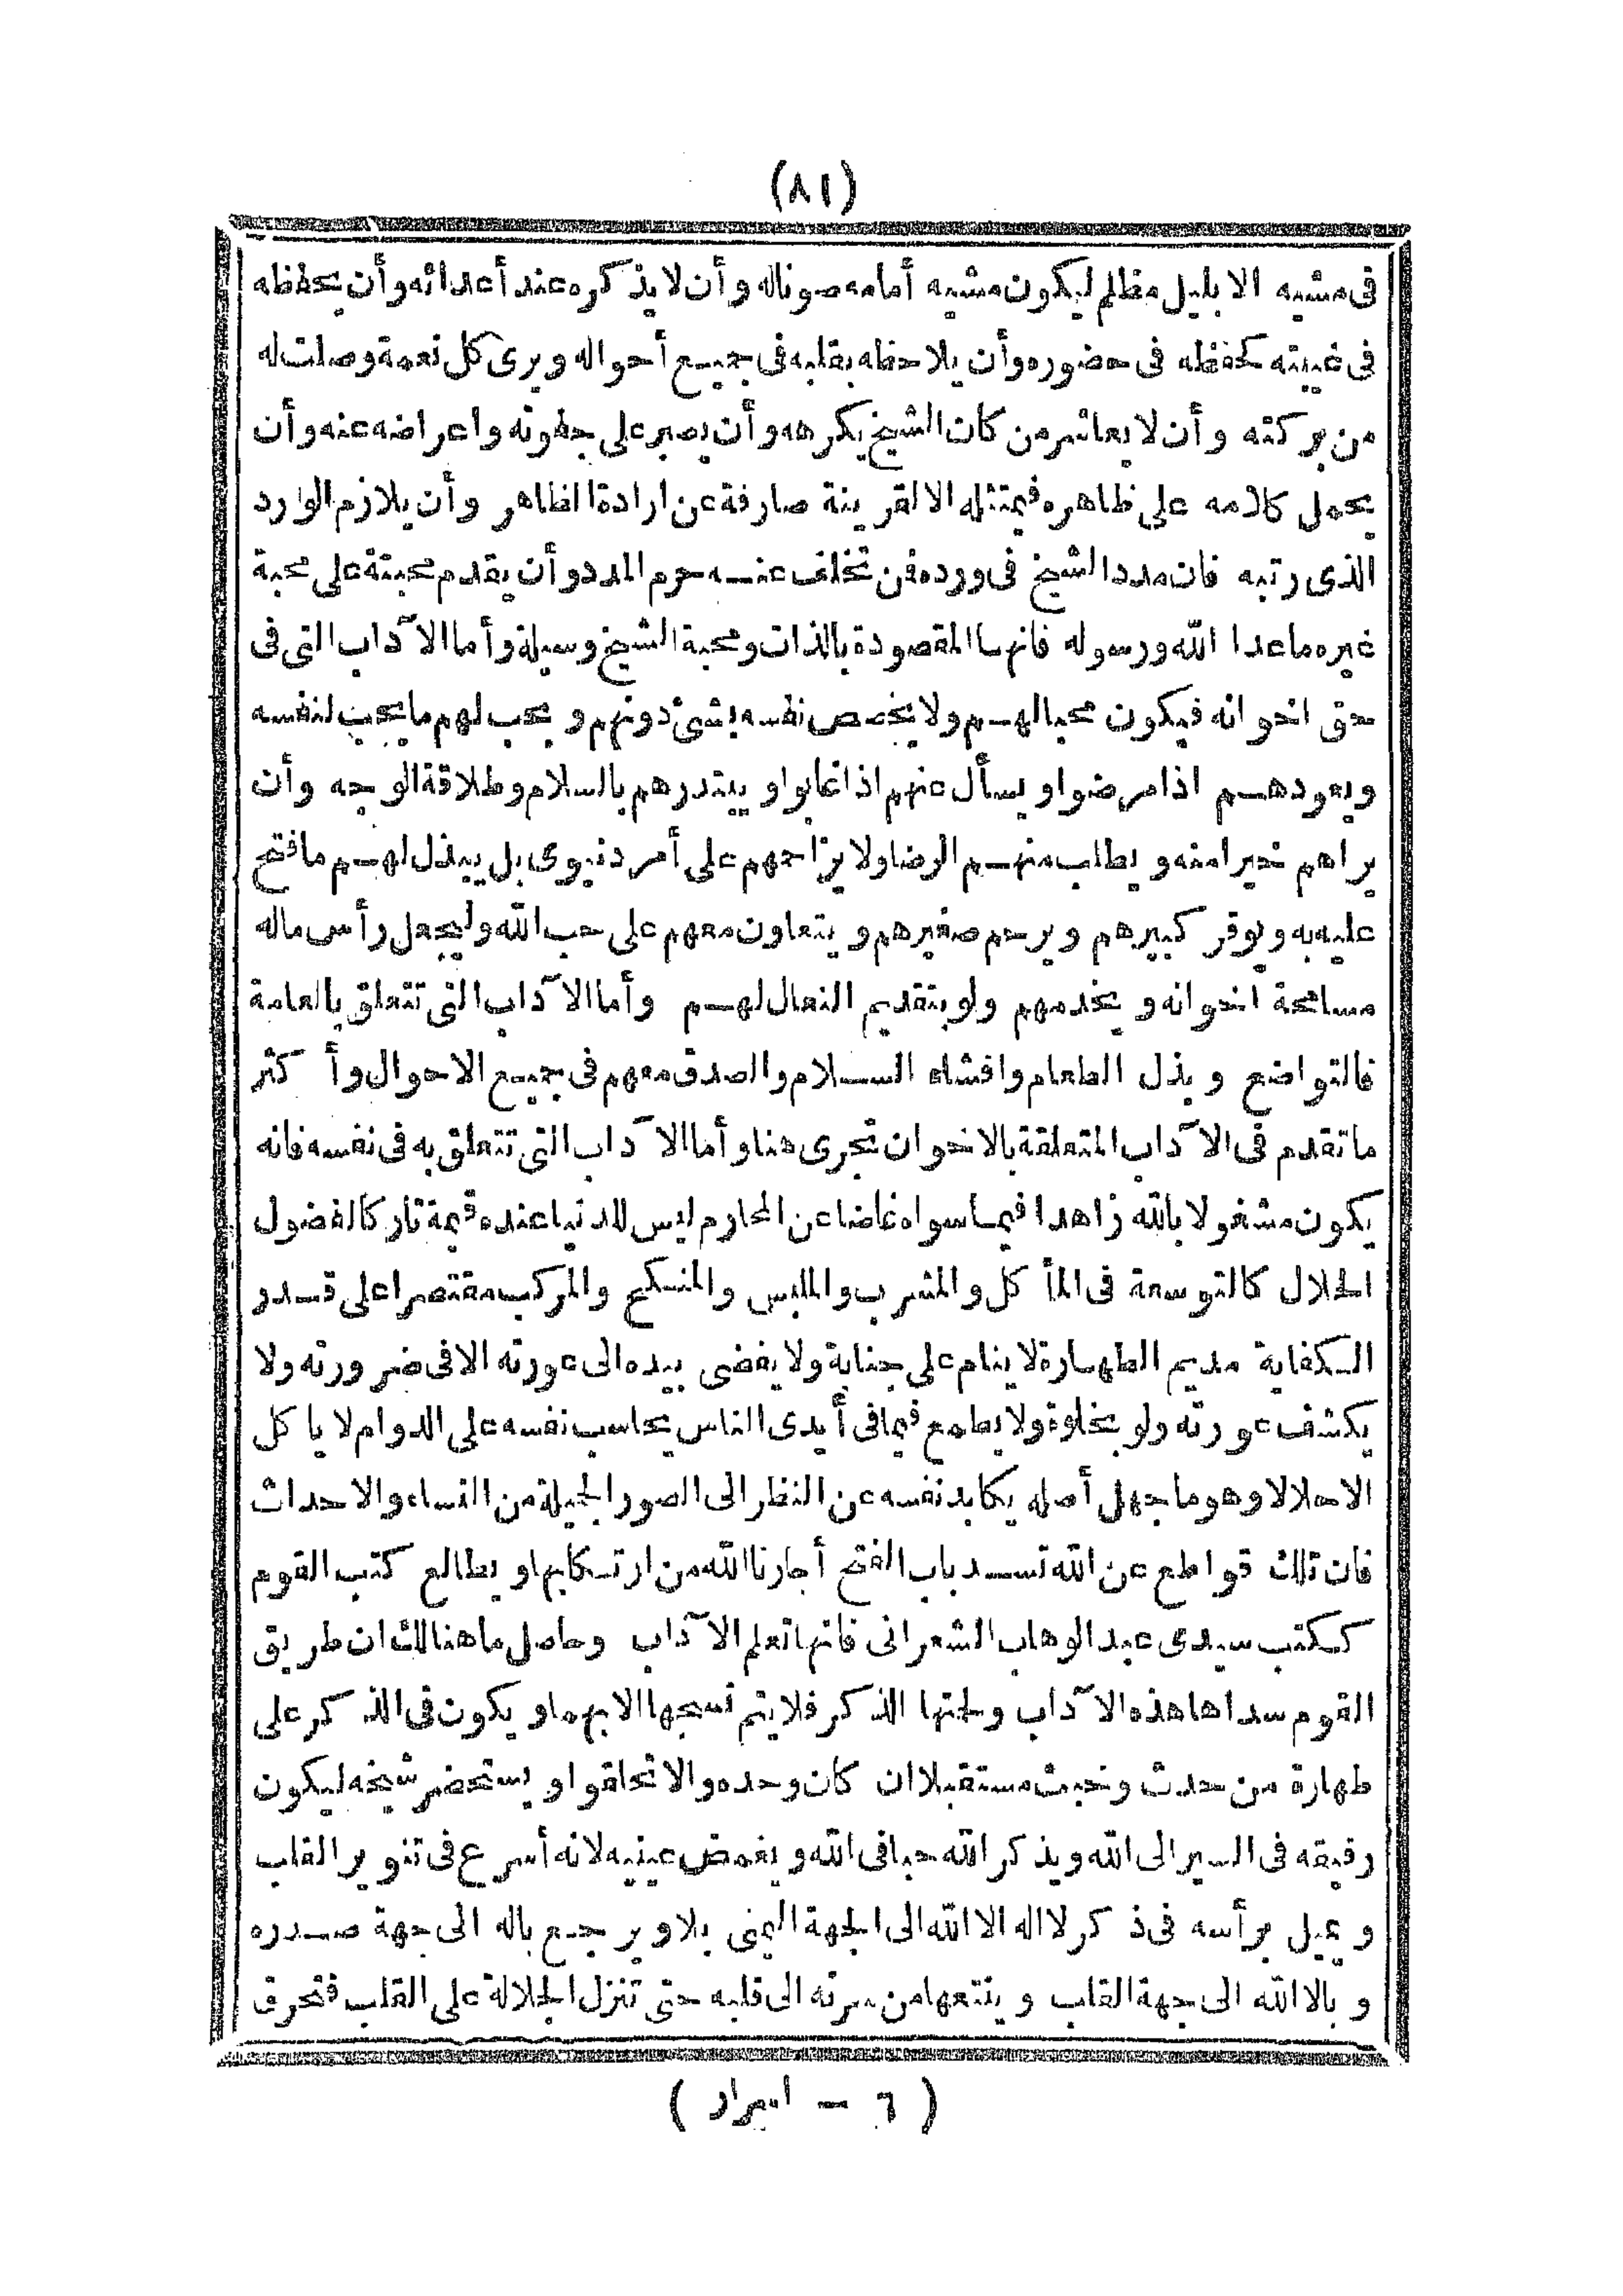 (٨١)
فى مشيه الا بليل مظلم ليكون مشيه أمامه صوناله وأن لا يذكره عند أعدائه وأن يحفظه
فى غيبته كحفظه فى حضوره وأن يلاحظه بقلبه فى جميع أحواله ويرى كل نعمة وصلت له
من بركته وأن لا يعاشر من كان الشيخ يكرهه وأن يصبر على جفوته واعراضه عنه وأن
يحمل كلامه على ظاهره فيمتثله الا لقرينة صارفة عن ارادة الظاهر وأن يلازم الوارد
الذى رتبه فان مدد الشيخ فى ورده فمن تخلف عنه حرم المدد وأن يقدم محبته على محبة
غيره ما عدا الله ورسوله فانها المقصودة بالذات ومحبة الشيخ وسيلة وأما الآداب التى فى
حق اخوانه فيكون محبا لهم ولا يخصص نفسه بشئ دونهم ويحب لهم ما يحب لنفسه
ويعودهم اذا مرضوا ويسأل عنهم اذا غابوا ويبتدرهم بالسلام وطلاقة الوجه وأن
يراهم خيرا منه ويطلب منهم الرضا ولا يزاحمهم على أمر دنيوى بل يبذل لهم ما فتح
عليه به ويوقر كبيرهم ويرحم صغيرهم ويتعاون معهم على حب الله وليجعل رأس ماله
مسامحة اخوانه ويخدمهم ولو بتقديم النعال لهم وأما الآداب التى تتعلق بالعامة
فالتواضع وبذل الطعام وافشاء السلام والصدق معهم فى جميع الاحوال وأكثر
ما تقدم فى الآداب المتعلقة بالاخوان تجرى هنا وأما الآداب التى تتعلق به فى نفسه فانه
يكون مشغولا بالله زاهدا فيما سواه غاضا عن المحارم ليس للدنيا عنده قيمة تاركا لفضول
الحلال كالتوسعة فى المأكل والمشرب والملبس والمنكح والمركب مقتصرا على قدر
الكفاية مديم الطهارة لا ينام على جنابة ولا يفضى بيده الى عورته الا فى ضرورته ولا
يكشف عورته ولو بخلوة ولا يطمع فيما فى أيدى الناس يحاسب نفسه على الدوام لا ياكل
الا حلالا وهو ما جهل أصله يكابد نفسه عن النظر الى الصور الجميلة من النساء والاحداث
فان تلك قواطع عن الله تسد باب الفتح أجارنا الله من ارتكابها ويطالع كتب القوم
ككتب سيدى عبد الوهاب الشعرانى فانها تعلم الآداب وحاصل ما هنالك ان طريق
القوم سداها هذه الآداب ولحمتها الذكر فلا يتم نسجها الا بهما ويكون فى الذكر على
طهارة من حدث وخبث مستقبلا ان كان وحده والا تحلقوا ويستحضر شيخه ليكون
رفيقه فى السير الى الله ويذكر الله حبا فى الله ويغمض عينيه لانه أسرع فى تنوير القلب
ويميل برأسه فى ذكر لا اله الا الله الى الجهة اليمنى بلا ويرجع باله الى جهة صدره
وبالا الله الى جهة القلب وينتعها من سرته الى قلبه حتى تنزل الجلالة على القلب فتحرق
(٦ – اسرار)